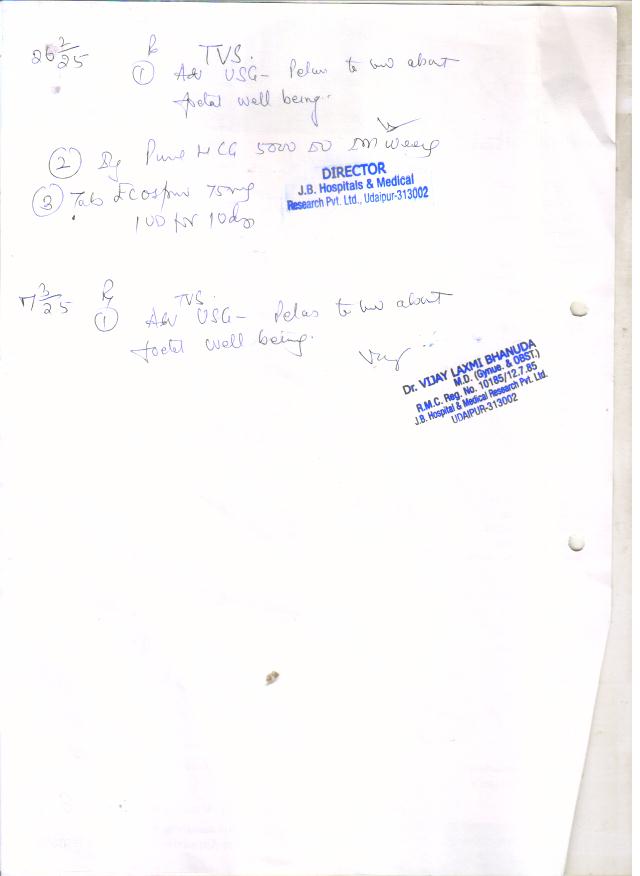 26/2/25 R TVS.
① Adv USG - Pelvis to know about
foetal well being.
② Inj Pure HCG 5000 IU IM weekly
DIRECTOR
J.B. Hospitals & Medical
Research Pvt. Ltd., Udaipur-313002
③ Tab Ecosprin 75mg
1 OD for 10 days
7/3/25 R TVS
① Adv USG - Pelvis to know about
foetal well being.
Dr. VIJAY LAXMI BHANUDA
M.D. (Gynue. & OBST.)
R.M.C. Reg. No. 10185/12.7.85
J.B. Hospital & Medical Research Pvt. Ltd.
UDAIPUR-313002